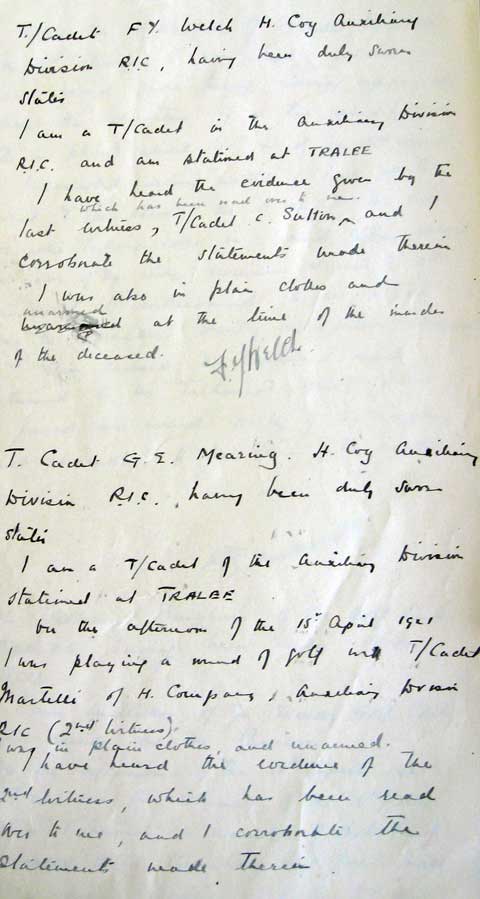 T./Cadet F.Y. Welch H. Coy Auxiliary
Division R.I.C, having been duly sworn
states
I am a T/Cadet in the Auxiliary Division
R.I.C. and am stationed at TRALEE
I have heard the evidence given by the
which has been read over to me.
last witness, T/Cadet C. Sutton, and I
corroborate the statements made therein
I was also in plain clothes and
unarmed
at the time of the murder
of the deceased.
F.Y Welch.
T. Cadet G.E. Mearing. H. Coy Auxiliary
Division R.I.C. having been duly sworn
states
I am a T/Cadet of the Auxiliary Division
stationed at TRALEE
On the afternoon of the 15th April 1921
I was playing a round of golf with T/Cadet
Martelli of H. Company, Auxiliary Division
RIC (2nd Witness).
I was in plain clothes, and unarmed.
I have heard the evidence of the
2nd Witness, which has been read
over to me, and I corroborate the
statements made therein